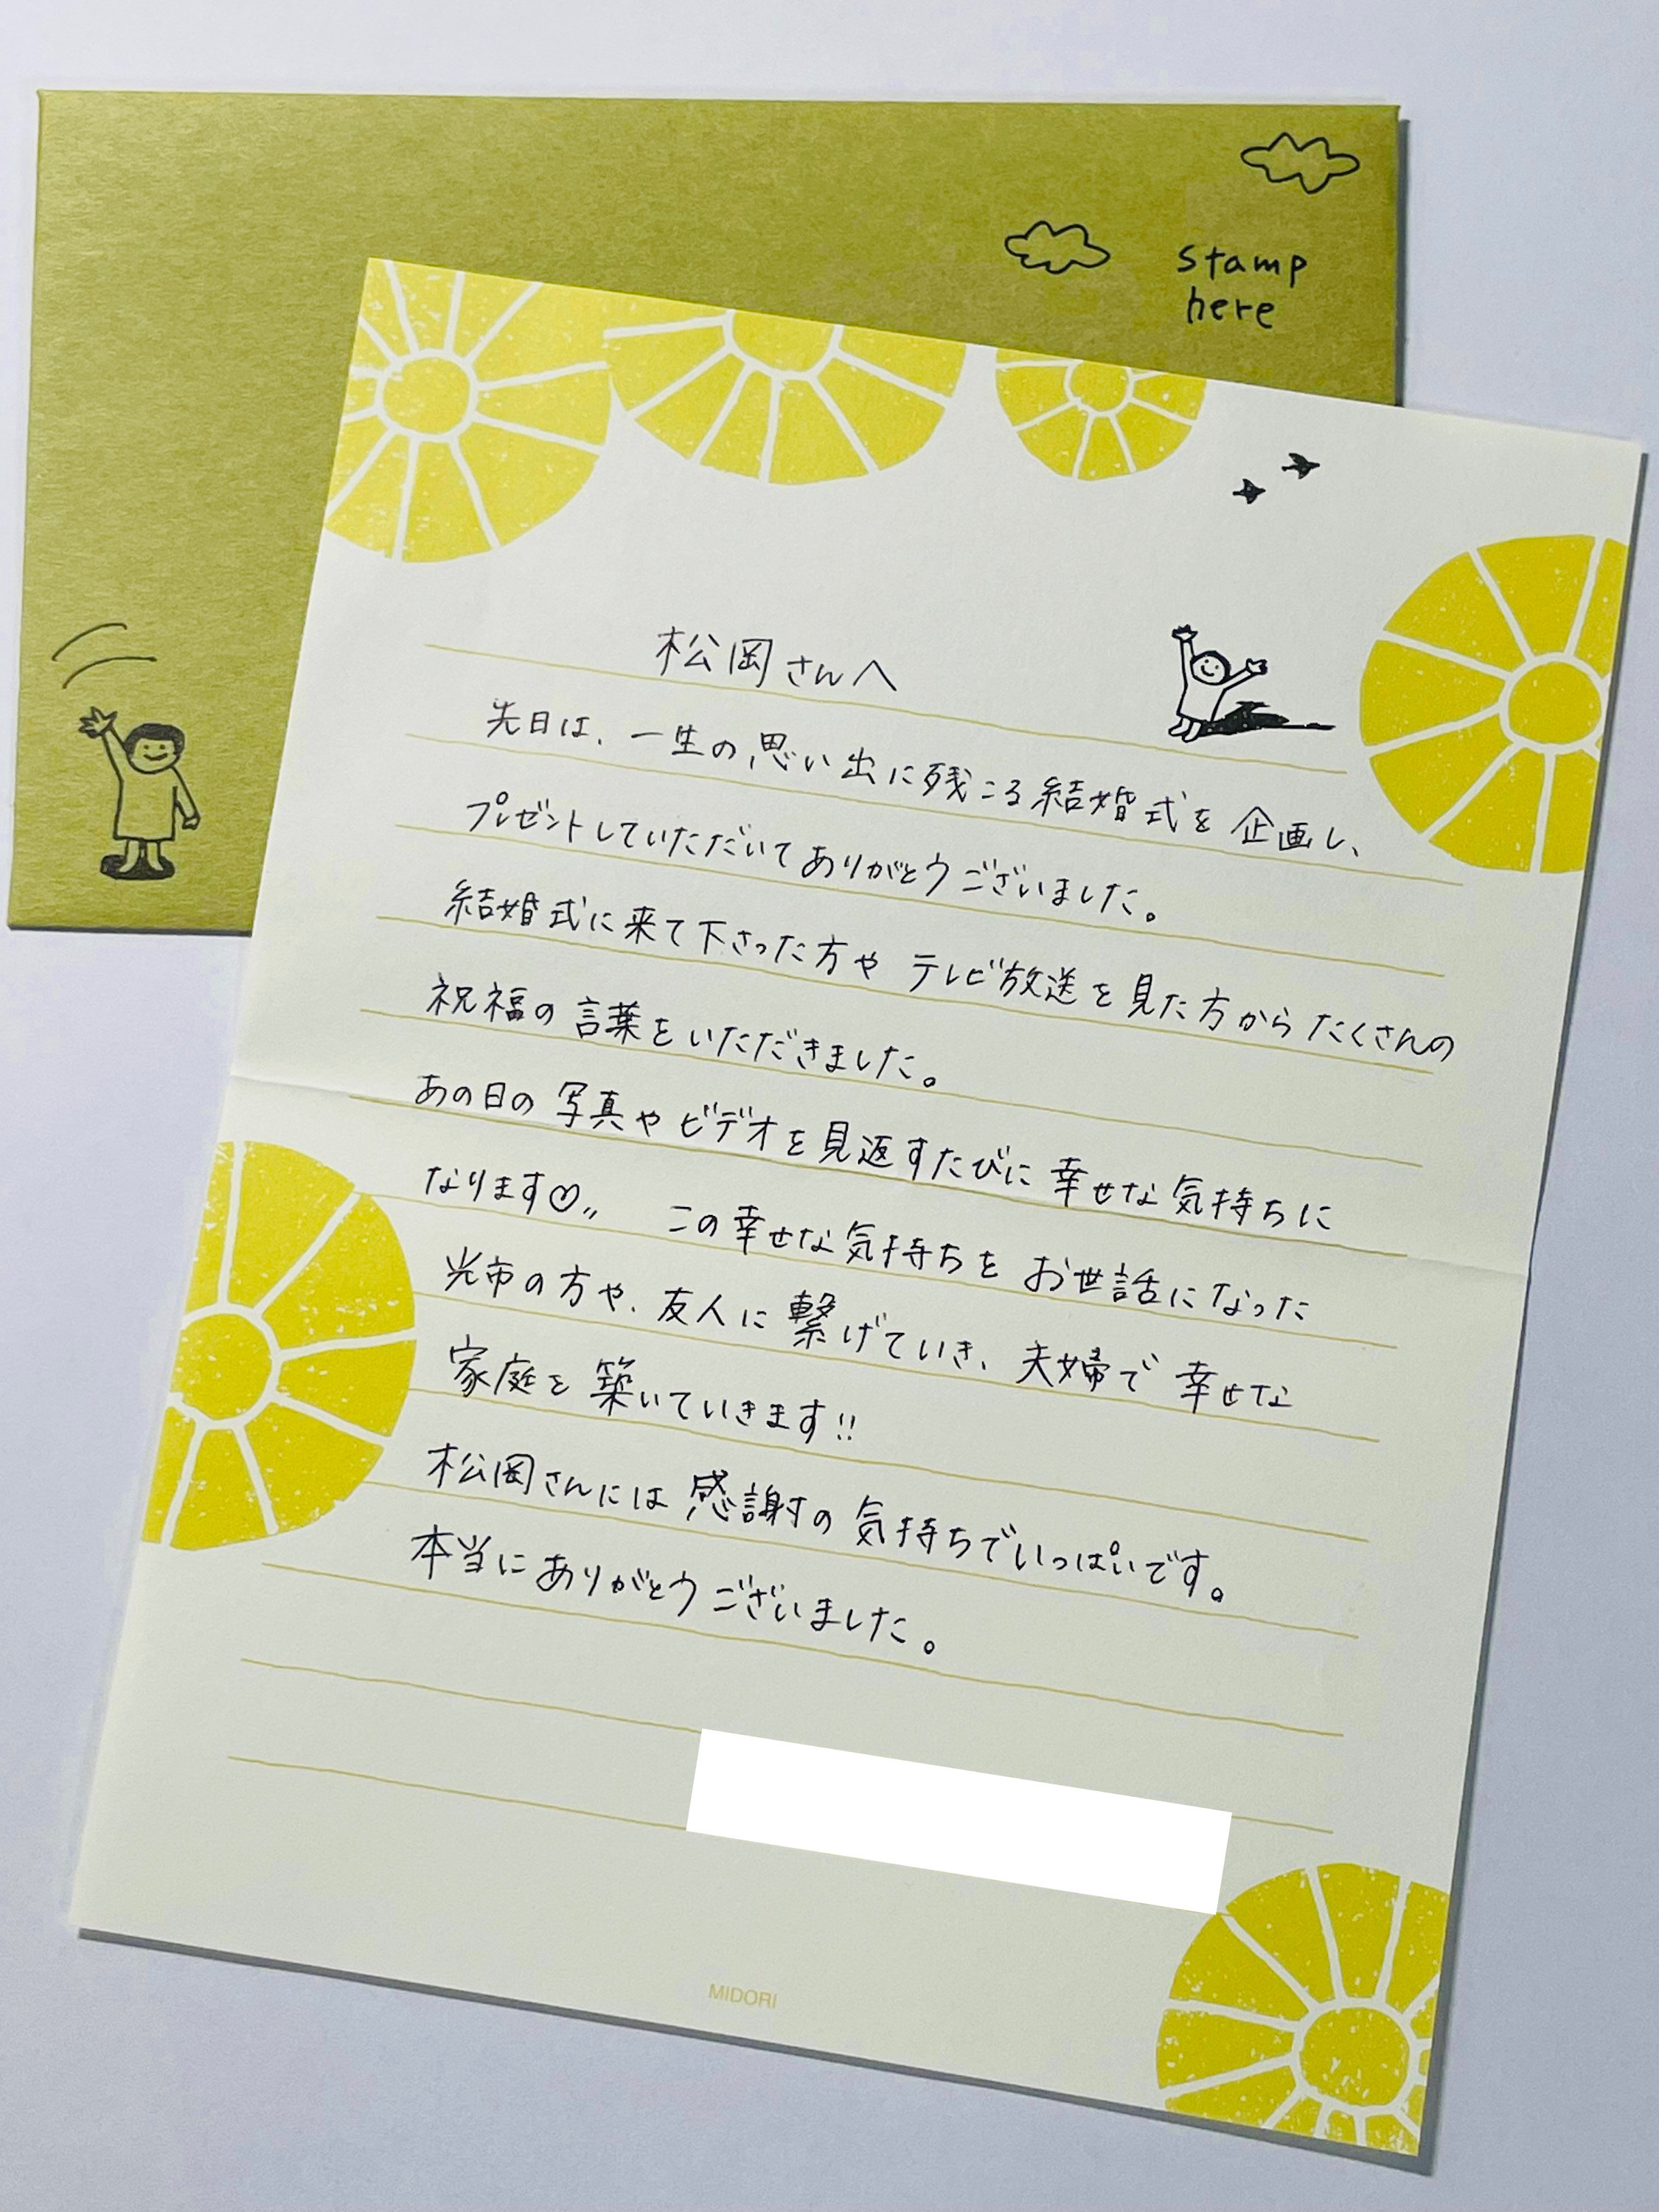 stamp
here
松岡さんへ
先日は、一生の思い出に残こる結婚式を企画し、
プレゼントしていただいてありがとうございました。
結婚式に来て下さった方やテレビ放送を見た方からたくさんの
祝福の言葉をいただきました。
あの日の写真やビデオを見返すたびに幸せな気持ちに
なります♡〃 この幸せな気持ちをお世話になった
光市の方や、友人に繋げていき、夫婦で幸せな
家庭を築いていきます!!
松岡さんには感謝の気持ちでいっぱいです。
本当にありがとうございました。
MIDORI